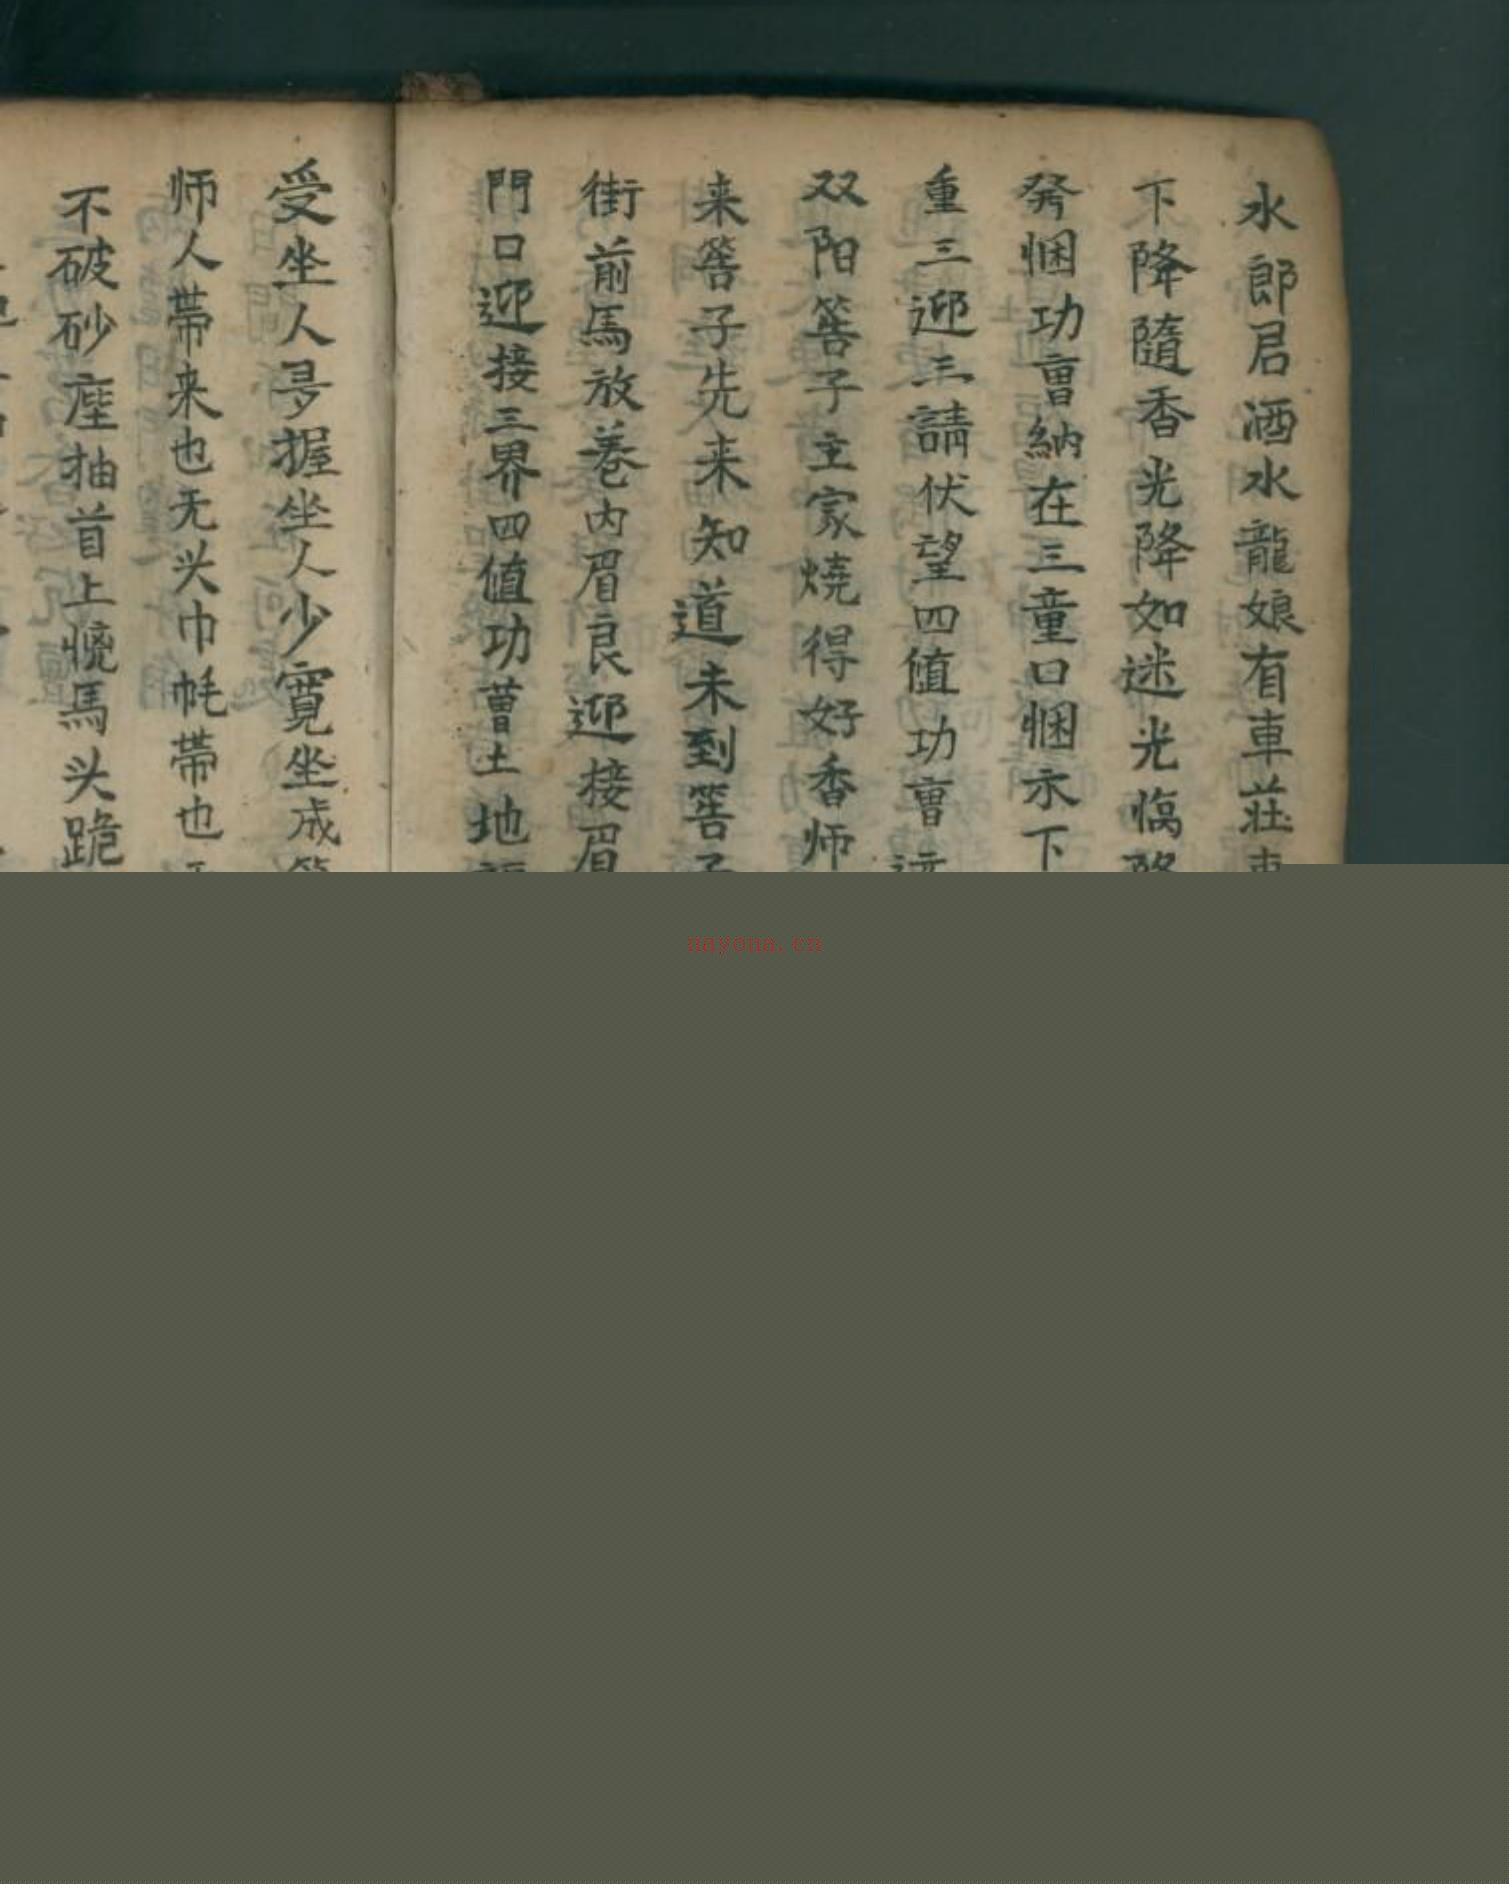 水郎君洒水龍娘有車莊車
下降隨香光降如迷光臨降
発悃功曺納在三童口悃示下
重三迎三請伏望四值功曺
双阳筶子主家燒得好香师
来筶子先来知道未到筶子
街前馬放巷內眉良迎接眉
門口迎接三界四值功曹土地
受坐人㝵握坐人少寛坐成
师人帶来也无头巾帐帶也
不破砂座抽首上㤥馬头跪
nayona.cn